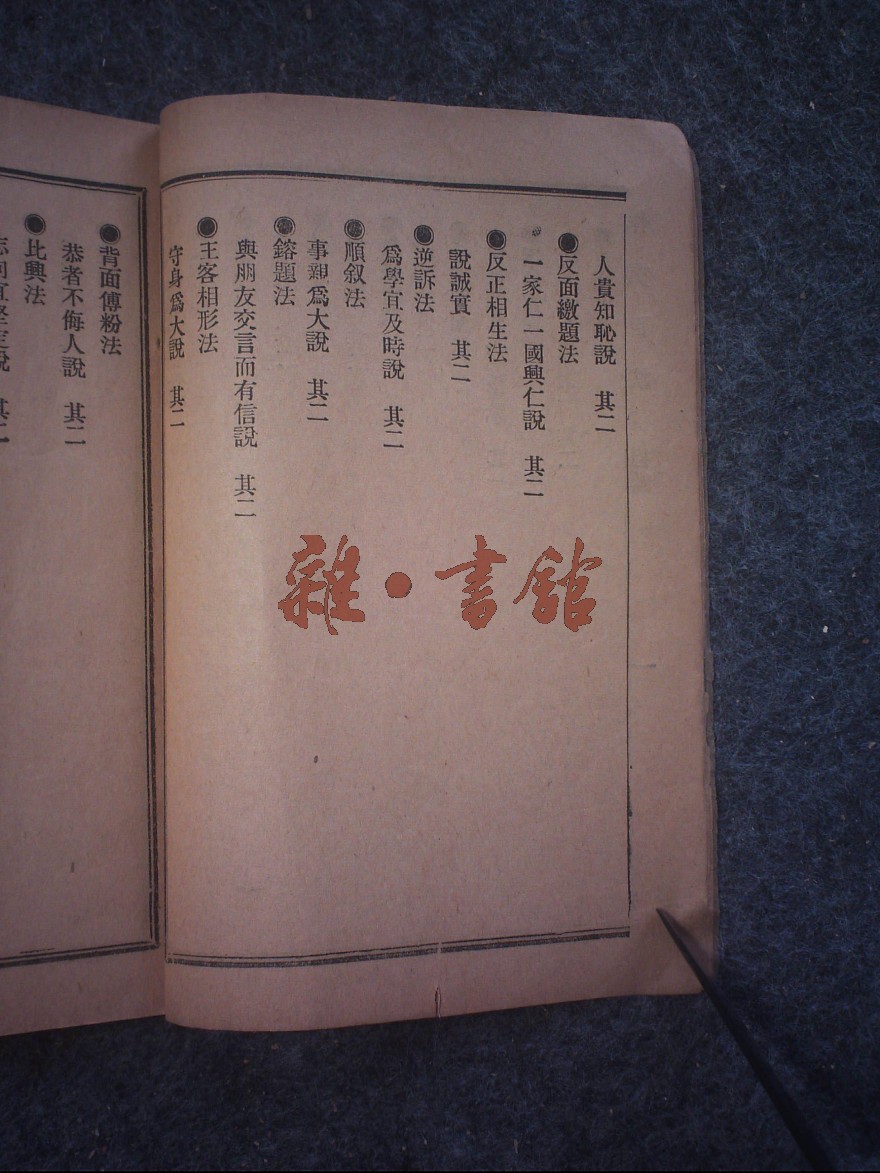 人貴知恥說　其二
●反面繳題法
一家仁一國興仁說　其二
●反正相生法
說誠實　其二
●逆訴法
爲學宜及時說　其二
●順叙法
事親爲大說　其二
●鎔題法
與朋友交言而有信說　其二
●主客相形法
守身爲大說　其二
●背面傅粉法
恭者不侮人說　其二
●比興法
說　其二
雜·書館